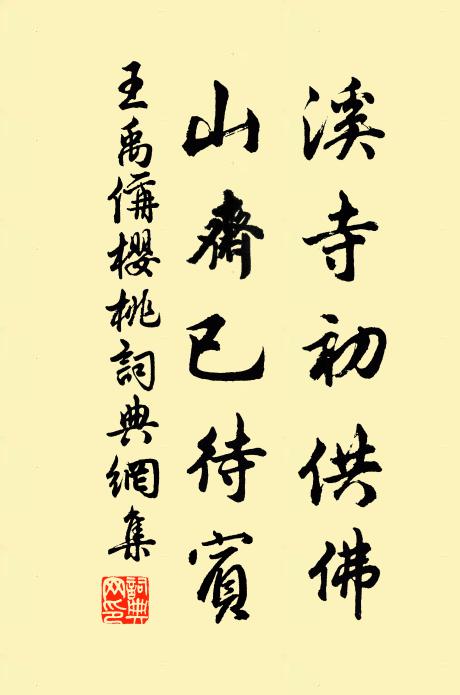 溪寺初供佛
山齋已待賓
王禹偁櫻桃詞典網集
詞典網印